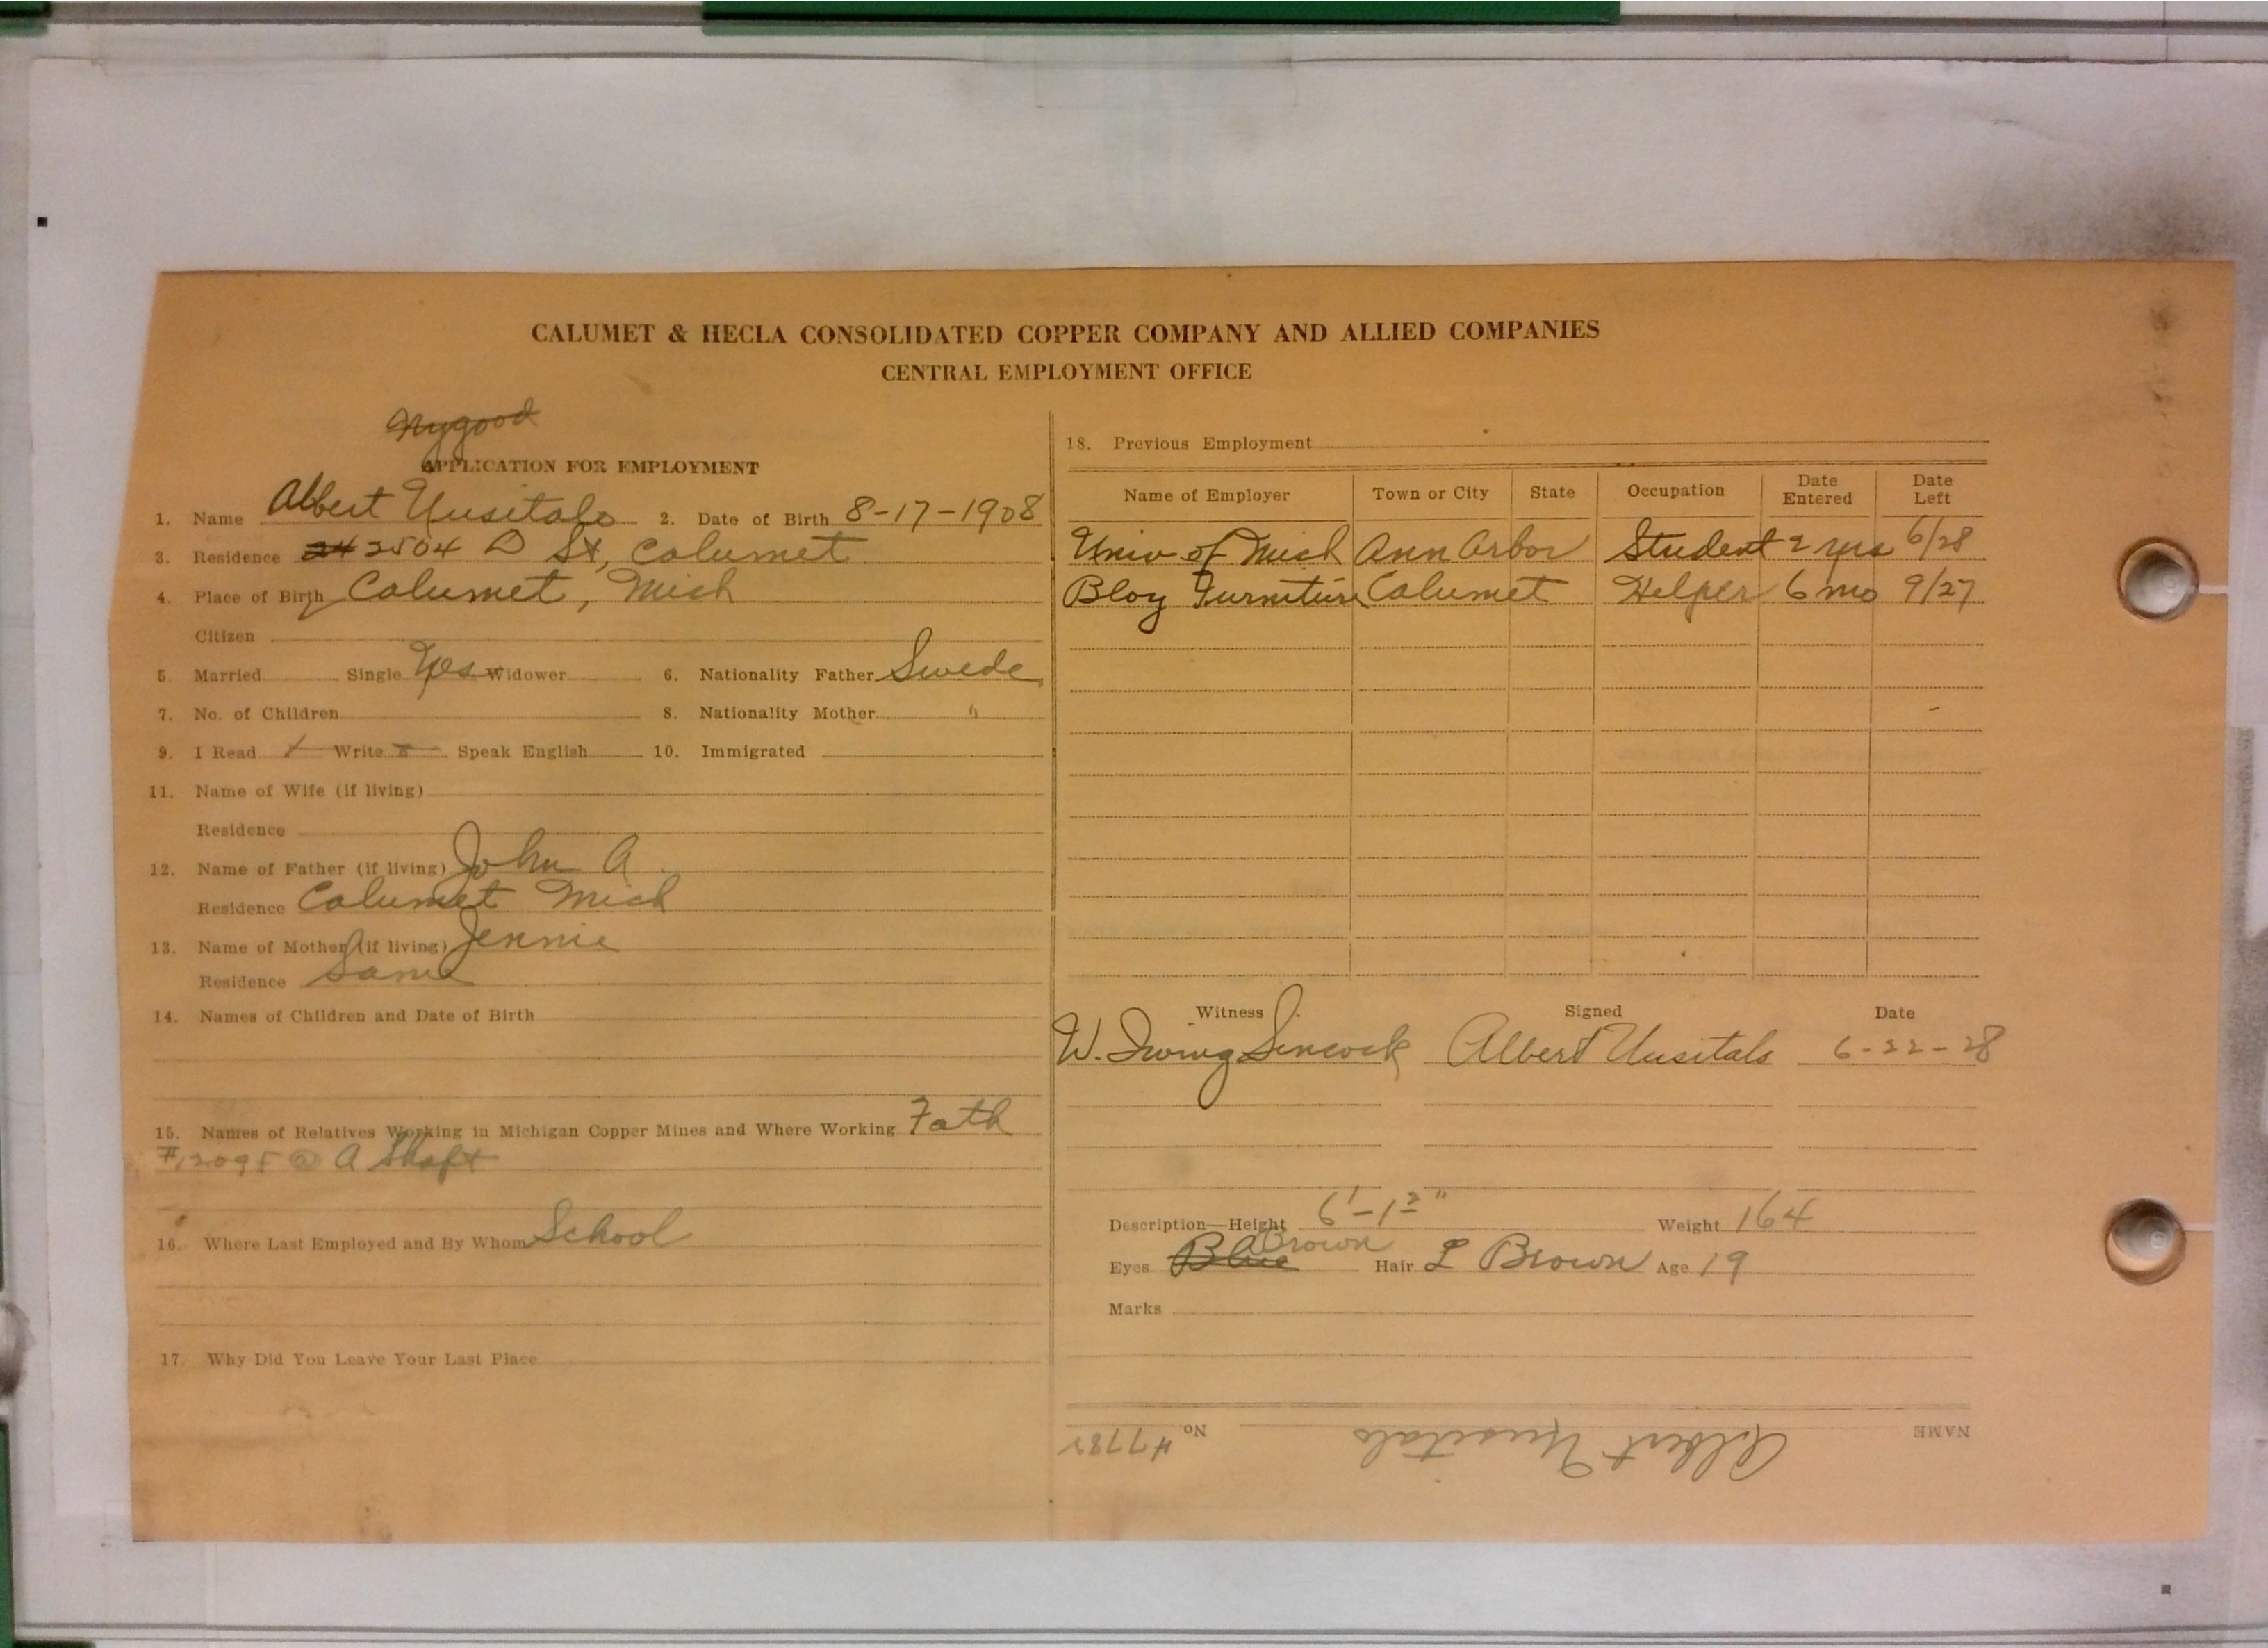 CALUMET & HECLA CONSOLIDATED COPPER COMPANY AND ALLIED COMPANIES
CENTRAL EMPLOYMENT OFFICE
Nygood
APPLICATION FOR EMPLOYMENT
1. Name Albert Uusitalo 2. Date of Birth 8-17-1908
3. Residence 24 2504 D St, Calumet
4. Place of Birth Calumet, Mich
Citizen
5. Married Single Yes Widower 6. Nationality Father Swede
7. No. of Children 8. Nationality Mother "
9. I Read Write Speak English 10. Immigrated
11. Name of Wife (if living)
Residence
12. Name of Father (if living) John A
Residence Calumet Mich
13. Name of Mother (if living) Jennie
Residence Same
14. Names of Children and Date of Birth
15. Names of Relatives Working in Michigan Copper Mines and Where Working Fath
@ A Shaft
16. Where Last Employed and By Whom School
17. Why Did You Leave Your Last Place
18. Previous Employment
Name of Employer Town or City State Occupation Date Entered Date Left
Univ of Mich Ann Arbor Student 2 yrs 6/28
Bloy Furniture Calumet Helper 6 mo 9/27
Witness Signed Date
W. Irving Sincock Albert Uusitalo 6-22-28
Description—Height 6'-1 2/" Weight 164
Eyes Blue Brown Hair L Brown Age 19
Marks
NAME Albert Uusitalo No